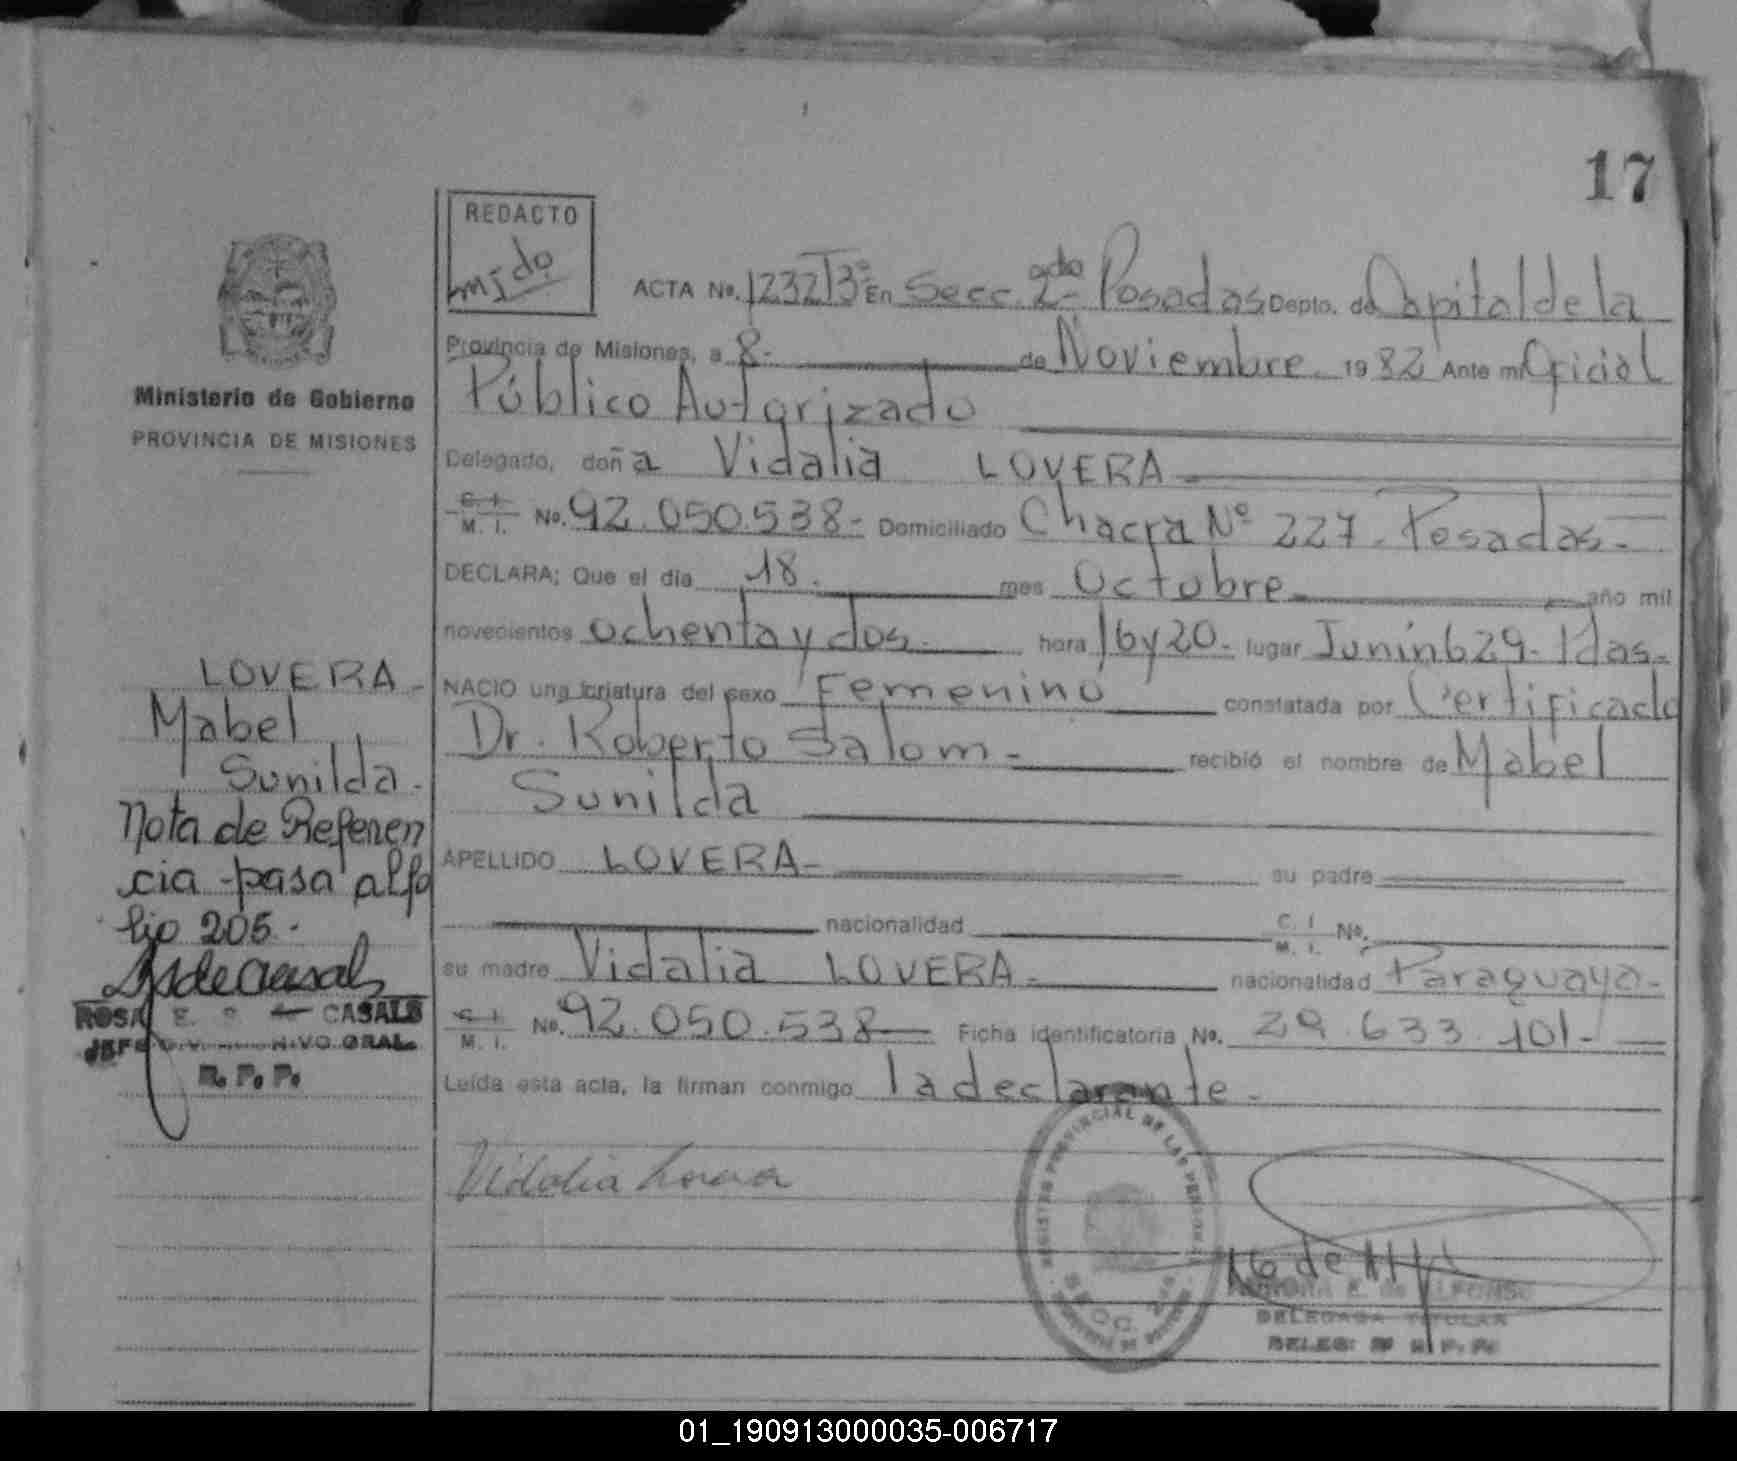 17
REDACTO
ACTA No. 1232 T3º En Secc. 2da Posadas Depto. de Capital de la
Provincia de Misiones, a 8.- de Noviembre. 1982 Ante mi Oficial
Público Autorizado
Delegado, doña Vidalia LOVERA
C. I. M. I. No. 92.050.538- Domiciliado Chacra Nº 227 - Posadas.-
DECLARA; Que el día 18. mes Octubre año mil
novecientos ochenta y dos.- hora 16 y 20.- lugar Junín 629- Pdas.-
NACIO una criatura del sexo Femenino constatada por Certificado
Dr. Roberto Salom- recibió el nombre de Mabel
Sunilda
APELLIDO LOVERA- su padre
nacionalidad C. I. M. I. No.
su madre Vidalia LOVERA- nacionalidad Paraguaya-
C. I. M. I. No. 92.050.538 Ficha identificatoria No. 29.633.101-
Leída esta acta, la firman conmigo la declarante-
Vidalia Lovera
REGISTRO PROVINCIAL DE LAS PERSONAS
SECC. 2da
DELEGADA TITULAR
Ministerio de Gobierno
PROVINCIA DE MISIONES
LOVERA-
Mabel
Sunilda.
Nota de Referen
cia pasa al fo
lio 205.-
ROSA E. CASALS
R. P. P.
01_190913000035-006717